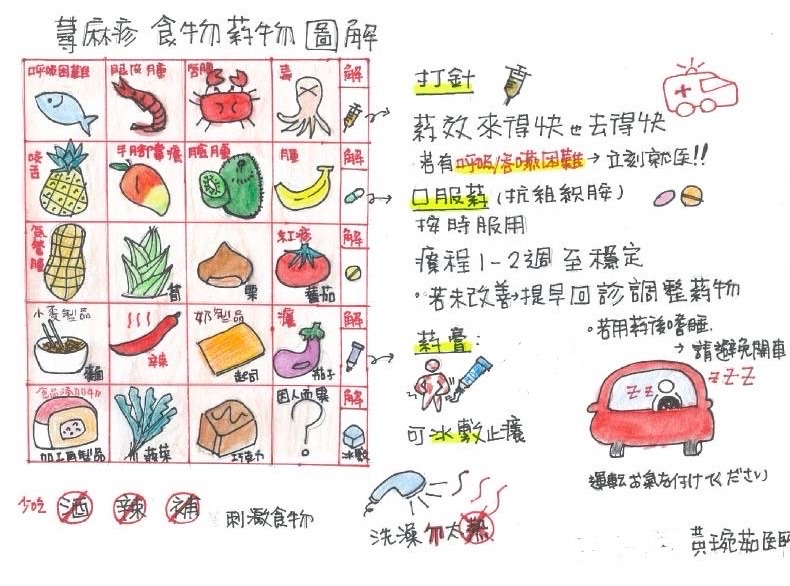 蕁麻疹 食物葯物 圖解
呼吸困難 眼皮腫 唇腫 毒 解
手腳 癢 臉腫 腫 解
氣管腫 筍 栗 紅疹 蕃茄 解
小麥製品 麵 辣 奶製品 起司 癢 茄子 解
食品添加物 加工魚製品 菠菜 巧克力 因人而異 ? 解 冰敷
少吃 酒 辣 補 刺激食物
打針
葯效來得快也去得快
·若有呼吸/吞嚥困難→立刻就医!!
口服葯(抗組織胺)
按時服用
療程1-2週至穩定
·若未改善→提早回診調整葯物
·若用葯後嗜睡
→請避免開車
葯膏:
可冰敷止癢
zz
zzz
運転お気を付けてください
洗澡勿太熱